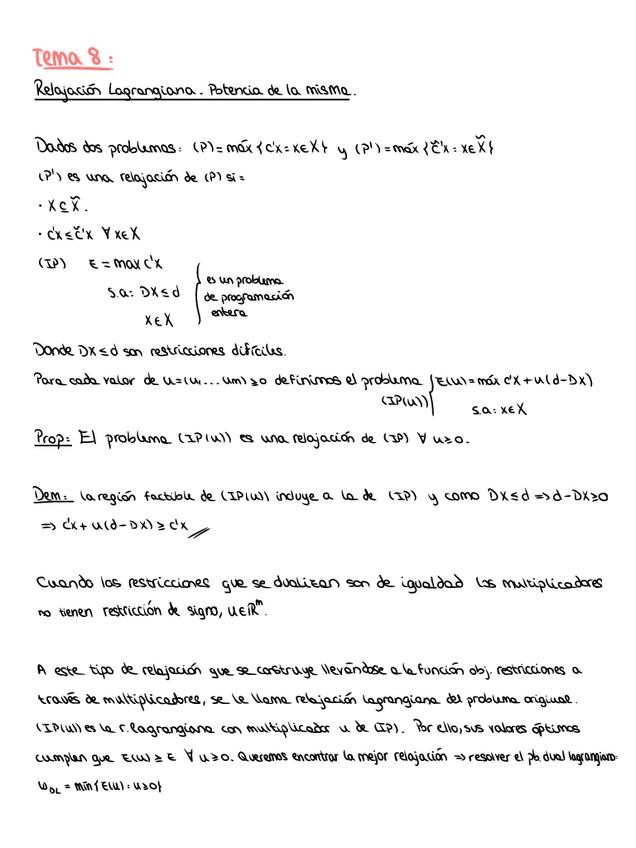 Tema 8:
Relajación Lagrangiana. Potencia de la misma.
Dados dos problemas: (P)= máx {c'x : x∈X} y (P') = máx {č'x : x∈X̌}
(P') es una relajación de (P) si:
· X ⊆ X̌.
· c'x ≤ č'x ∀ x∈X
(IP) E = max c'x
s.a: DX ≤ d
x∈X
es un problema
de programación
entera
Donde DX ≤ d son restricciones difíciles.
Para cada valor de u=(u,... um) ≥0 definimos el problema { E(u) = máx c'x + u(d-Dx)
(IP(u)) s.a: x∈X
Prop: El problema (IP(u)) es una relajación de (IP) ∀ u≥0.
Dem: La región factible de (IP(u)) incluye a la de (IP) y como DX≤d ⇒ d-DX≥0
⇒ c'x + u(d-DX) ≥ c'x
Cuando las restricciones que se dualizan son de igualdad los multiplicadores
no tienen restricción de signo, u∈ℝᵐ.
A este tipo de relajación que se construye llevándose a la función obj. restricciones a
través de multiplicadores, se le llama relajación lagrangiana del problema original.
(IP(u)) es la r. lagrangiana con multiplicador u de (IP). Por ello, sus valores óptimos
cumplen que E(u) ≥ E ∀ u≥0. Queremos encontrar la mejor relajación ⇒ resolver el pb. dual lagrangiano:
ω_DL = mín {E(u) : u≥0}